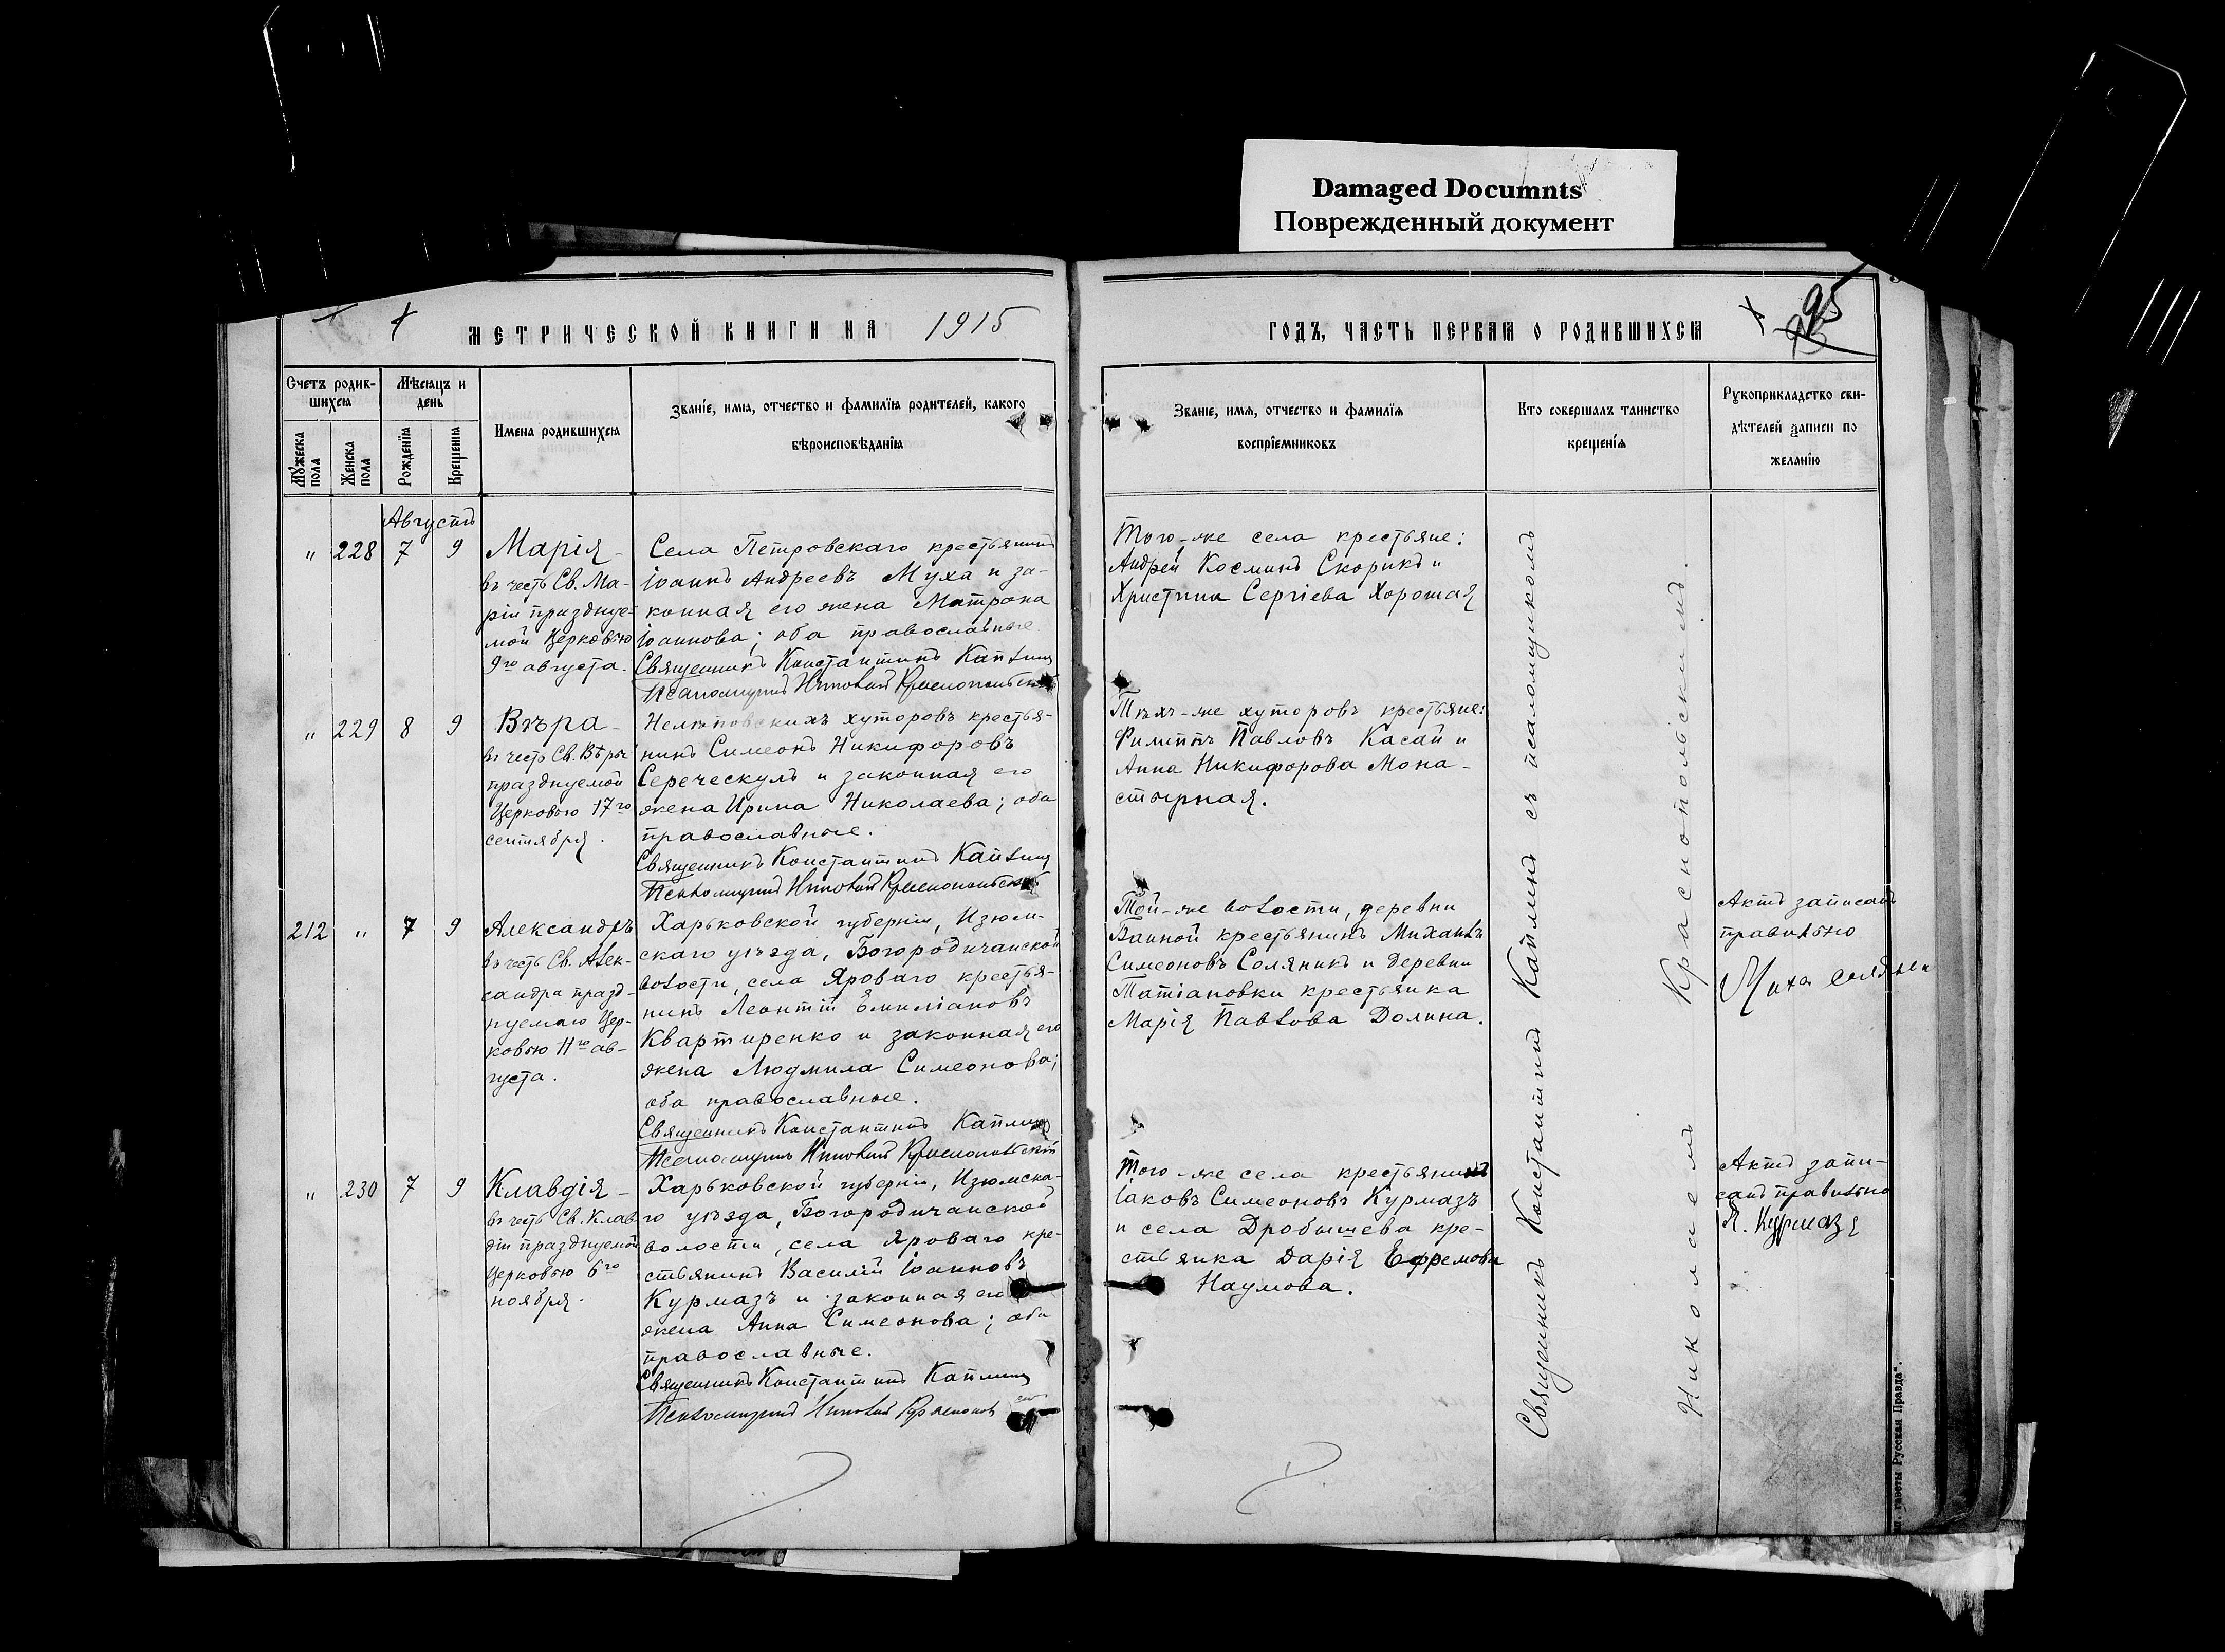 Damaged Documnts
Поврежденный документ
МЕТРИЧЕСКОЙ КНИГИ НА 1915
ГОДЪ, ЧАСТЬ ПЕРВАЯ О РОДИВШИХСЯ
95
Счетъ родив-
шихся
Мѣсяцъ и
день
Мужеска пола
Женска пола
Рожденія
Крещенія
Имена родившихся
Званіе, имя, отчество и фамилія родителей, какого
вѣроисповѣданія
Званіе, имя, отчество и фамилія
воспріемниковъ
Кто совершалъ таинство
крещенія
Рукоприкладство сви-
дѣтелей записи по
желанію
Августъ
" 228 7 9
Марія -
въ честь Св. Ма-
ріи празднуе-
мой Церковью
9го августа.
Села Петровскаго крестьянинъ
Іоаннъ Андреевъ Муха и за-
конная его жена Матрона
Іоаннова; оба православные.
Священникъ Константинъ Каплинъ
Псаломщикъ Николай Краснопольскій
Того-же села крестьяне:
Андрей Косминъ Скорикъ и
Христина Сергіева Хорошая
" 229 8 9
Вѣра -
въ честь Св. Вѣры
празднуемой
Церковью 17го
сентября.
хуторовъ крестья-
нинъ Симеонъ Никифоровъ
Сереческулъ и законная его
жена Ирина Николаева; оба
православные.
Священникъ Константинъ Каплинъ
Псаломщикъ Николай Краснопольскій
Тѣхъ-же хуторовъ крестьяне:
Филиппъ Павловъ Касай и
Анна Никифорова Мона-
стырная.
212 " 7 9
Александръ
въ честь Св. Алек-
сандра празд-
нуемаго Цер-
ковью 11го ав-
густа.
Харьковской губерніи, Изюм-
скаго уѣзда, Богородичанской
волости, села Яроваго крестья-
нинъ Леонтій Емиліановъ
Квартиренко и законная его
жена Людмила Симеонова;
оба православные.
Священникъ Константинъ Каплинъ
Псаломщикъ Николай Краснопольскій
Той-же волости, деревни
Банной крестьянинъ Михаилъ
Симеоновъ Соляникъ и деревни
Татіановки крестьянка
Марія Павлова Долина.
Актъ записанъ
правильно
" 230 7 9
Клавдія -
въ честь Св. Клав-
діи празднуемой
Церковью 6го
ноября.
Харьковской губерніи, Изюмска-
го уѣзда, Богородичанской
волости, села Яроваго кре-
стьянинъ Василій Іоанновъ
Курмазъ и законная его
жена Анна Симеонова; оба
православные.
Священникъ Константинъ Каплинъ
Псаломщикъ Николай Краснопольскій
Того-же села крестьянинъ
Іаковъ Симеоновъ Курмазъ
и села Дробышева кре-
стьянка Дарія Ефремова
Наумова.
Актъ запи-
санъ правильно
Я. Курмазъ
Священникъ Константинъ Каплинъ съ псаломщикомъ
Николаемъ Краснопольскимъ.
газеты Русская Правда".